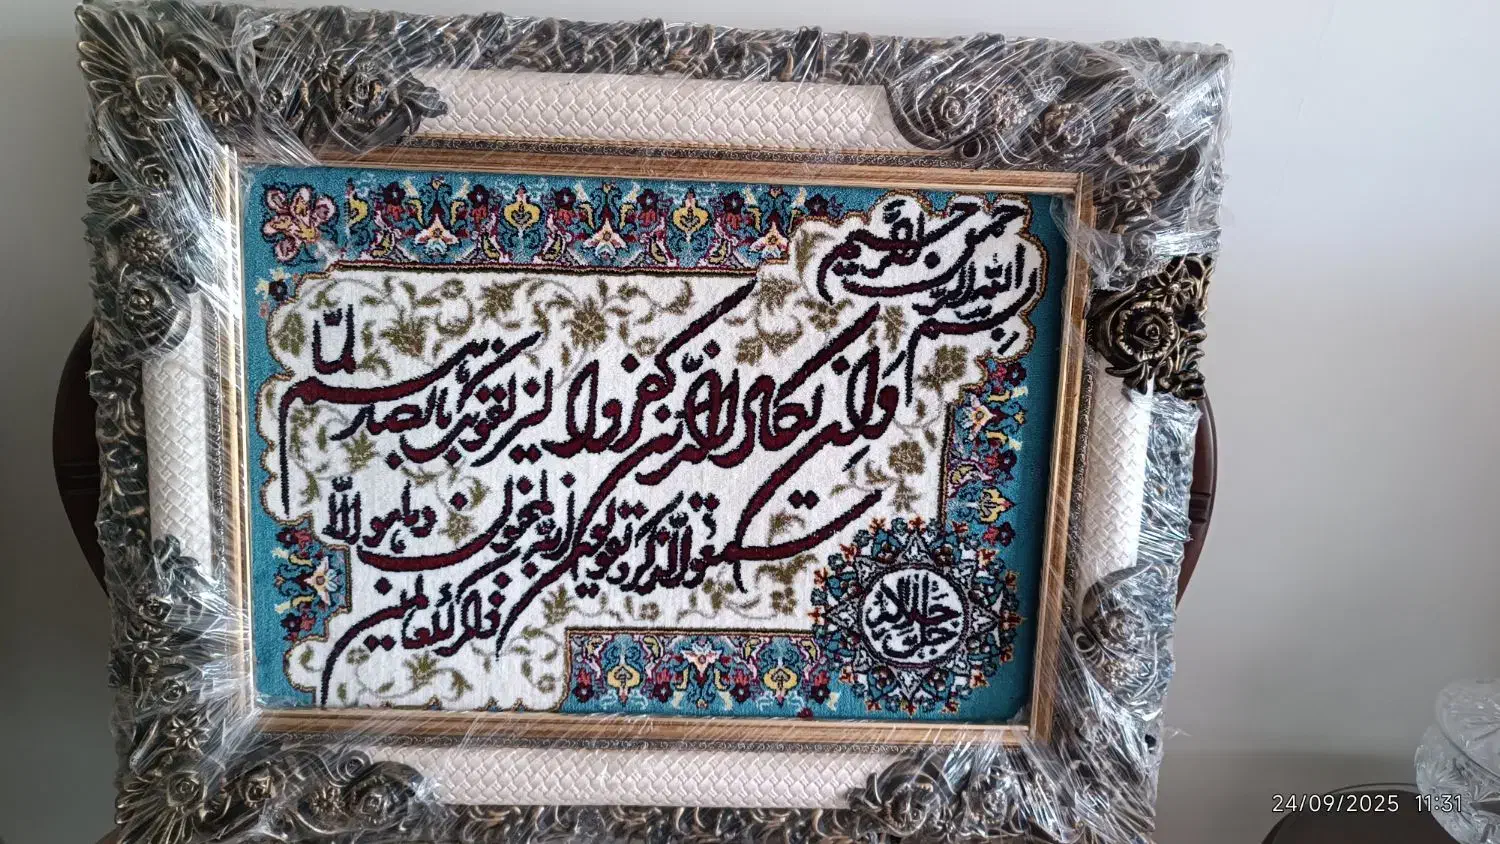 بسم الله الرحمن الرحیم
وَاِن یکاد الذین کفروا لیزلقونک بابصارهم لمّا
سمعوا الذکر و یقولون انه لمجنون و ما هو الّا
ذکر للعالمین
جل جلاله
24/09/2025 11:31